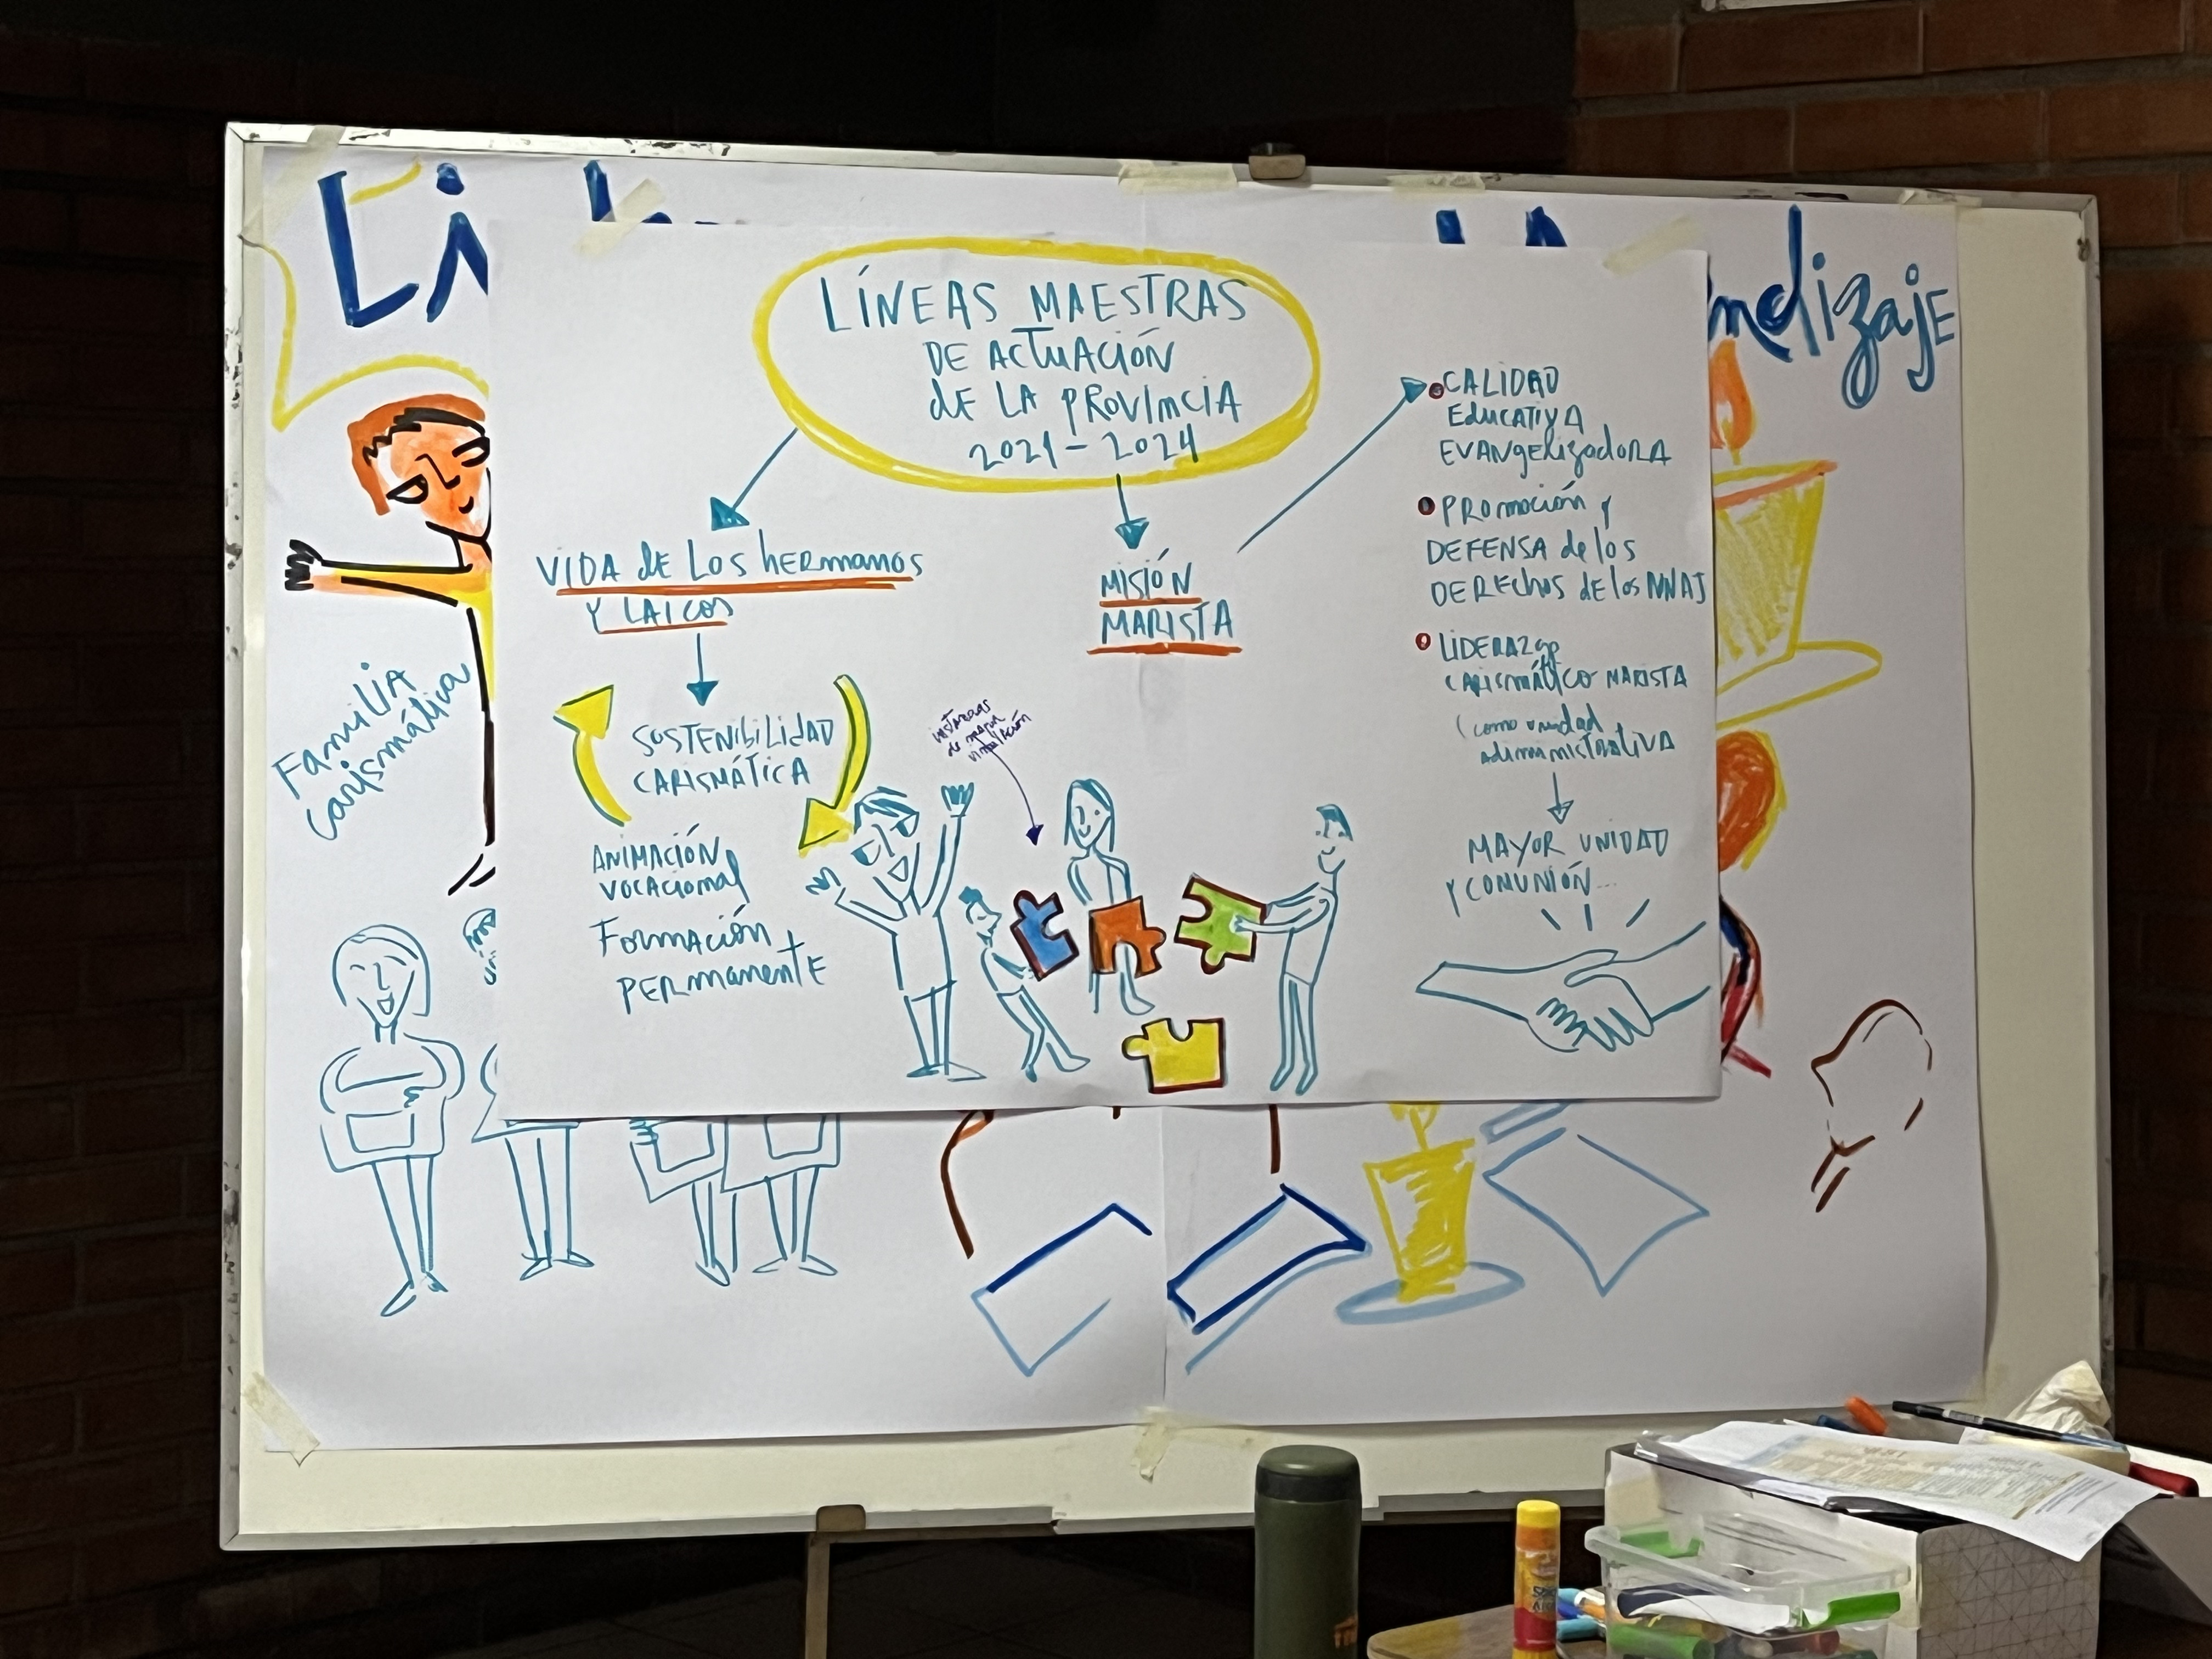 ndizajE
LÍNEAS MAESTRAS
DE ACTUACIÓN
dE LA PROVINCIA
2021-2024
VIDA dE Los hERmanos
Y LAICOS
SOSTENibiLidAD
CARISMÁTICA
ANIMACIÓN
VOCACIONAL
FORMACIÓN
PERMANENTE
MISIÓN
MARISTA
CALIDAD
EducATIVA
EVANgElizadoRA
PROmoción y
DEFENSA de los
DERECHos dE los NNAJ
LIDERAZgo
CARISMÁTICO MARISTA
(como unidad
administrativa
MAYOR UNIDAD
Y COMUNIÓN...
de mayor
Familia
carismática